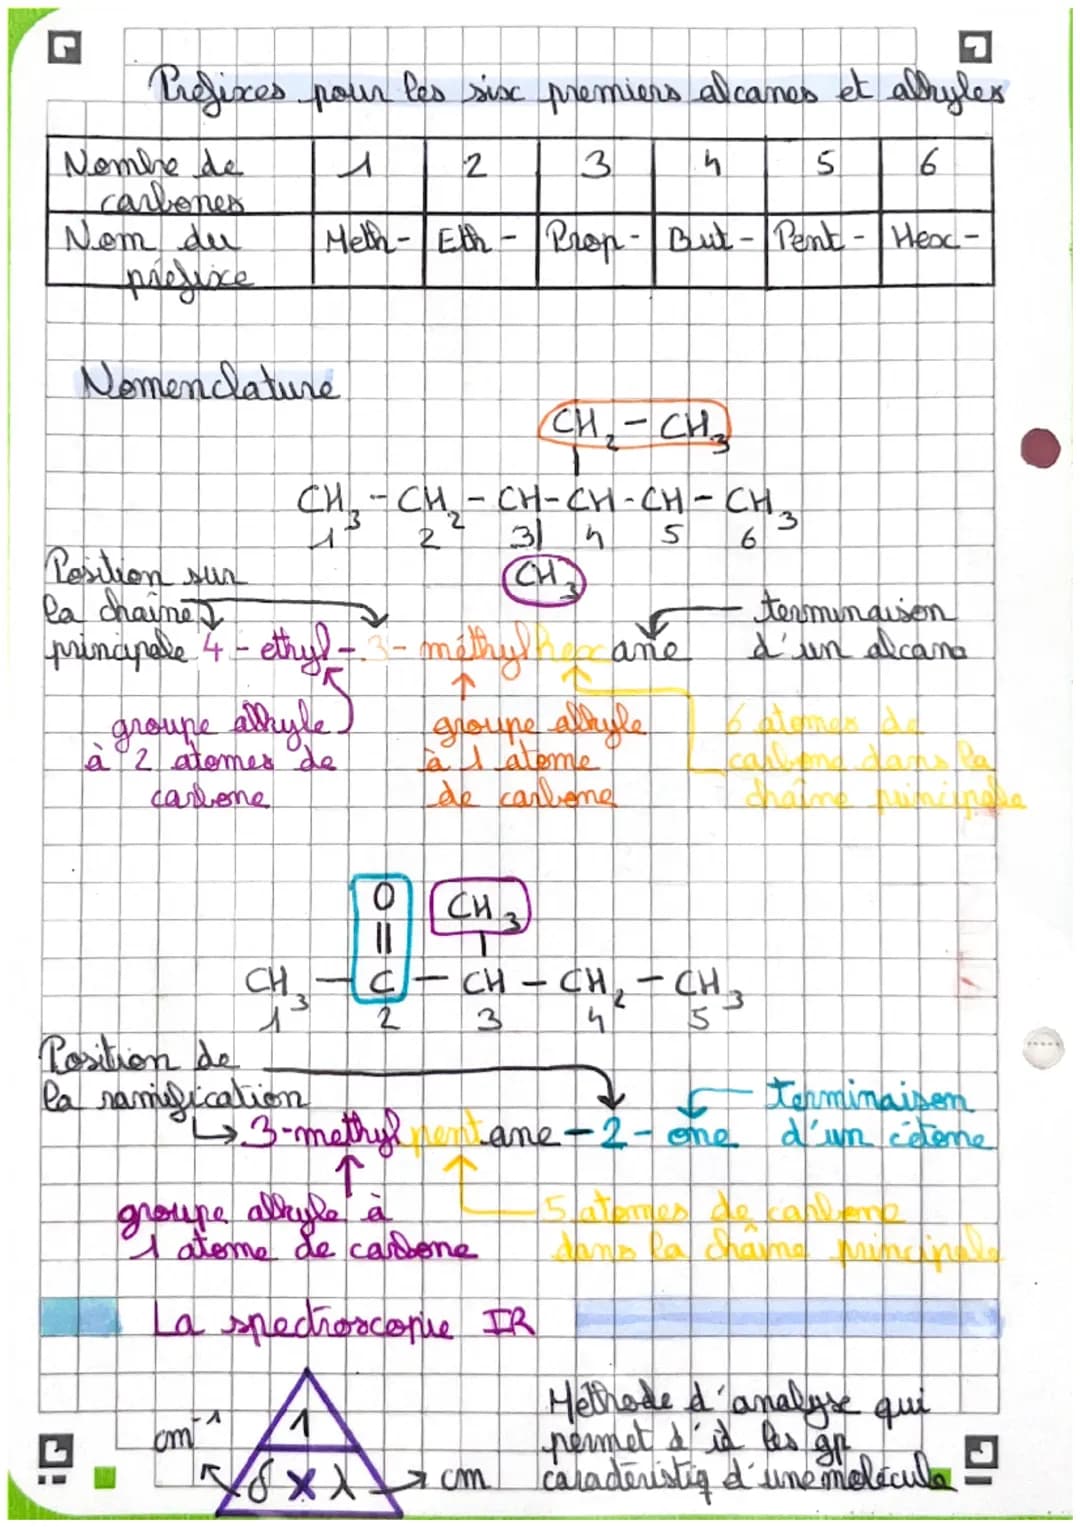 Préfixes pour les six premiers alcanes et alkyles
Nombre de carbones 1 2 3 4 5 6
Nom du préfixe Meth- Eth- Prop- But- Pent- Hex-
Nomenclature
CH2-CH3
CH3-CH2-CH-CH-CH-CH3
1 2 3 4 5 6
CH3
Position sur
la chaîne
principale
4-ethyl-3-méthylhexane
terminaison
d'un alcane
groupe alkyle
à 2 atomes de
carbone
groupe alkyle
à 1 atome
de carbone
6 atomes de
carbone dans la
chaîne principale
O
CH3
CH3-C-CH-CH2-CH3
1 2 3 4 5
Position de
la ramification
3-methylpentane-2-one
Terminaison
d'un cétone
groupe alkyle à
1 atome de carbone
5 atomes de carbone
dans la chaîne principale
La spectroscopie IR
cm-1
1
δ x λ
cm
Méthode d'analyse qui
permet d'id les gp
caractéristiq d'une molécule